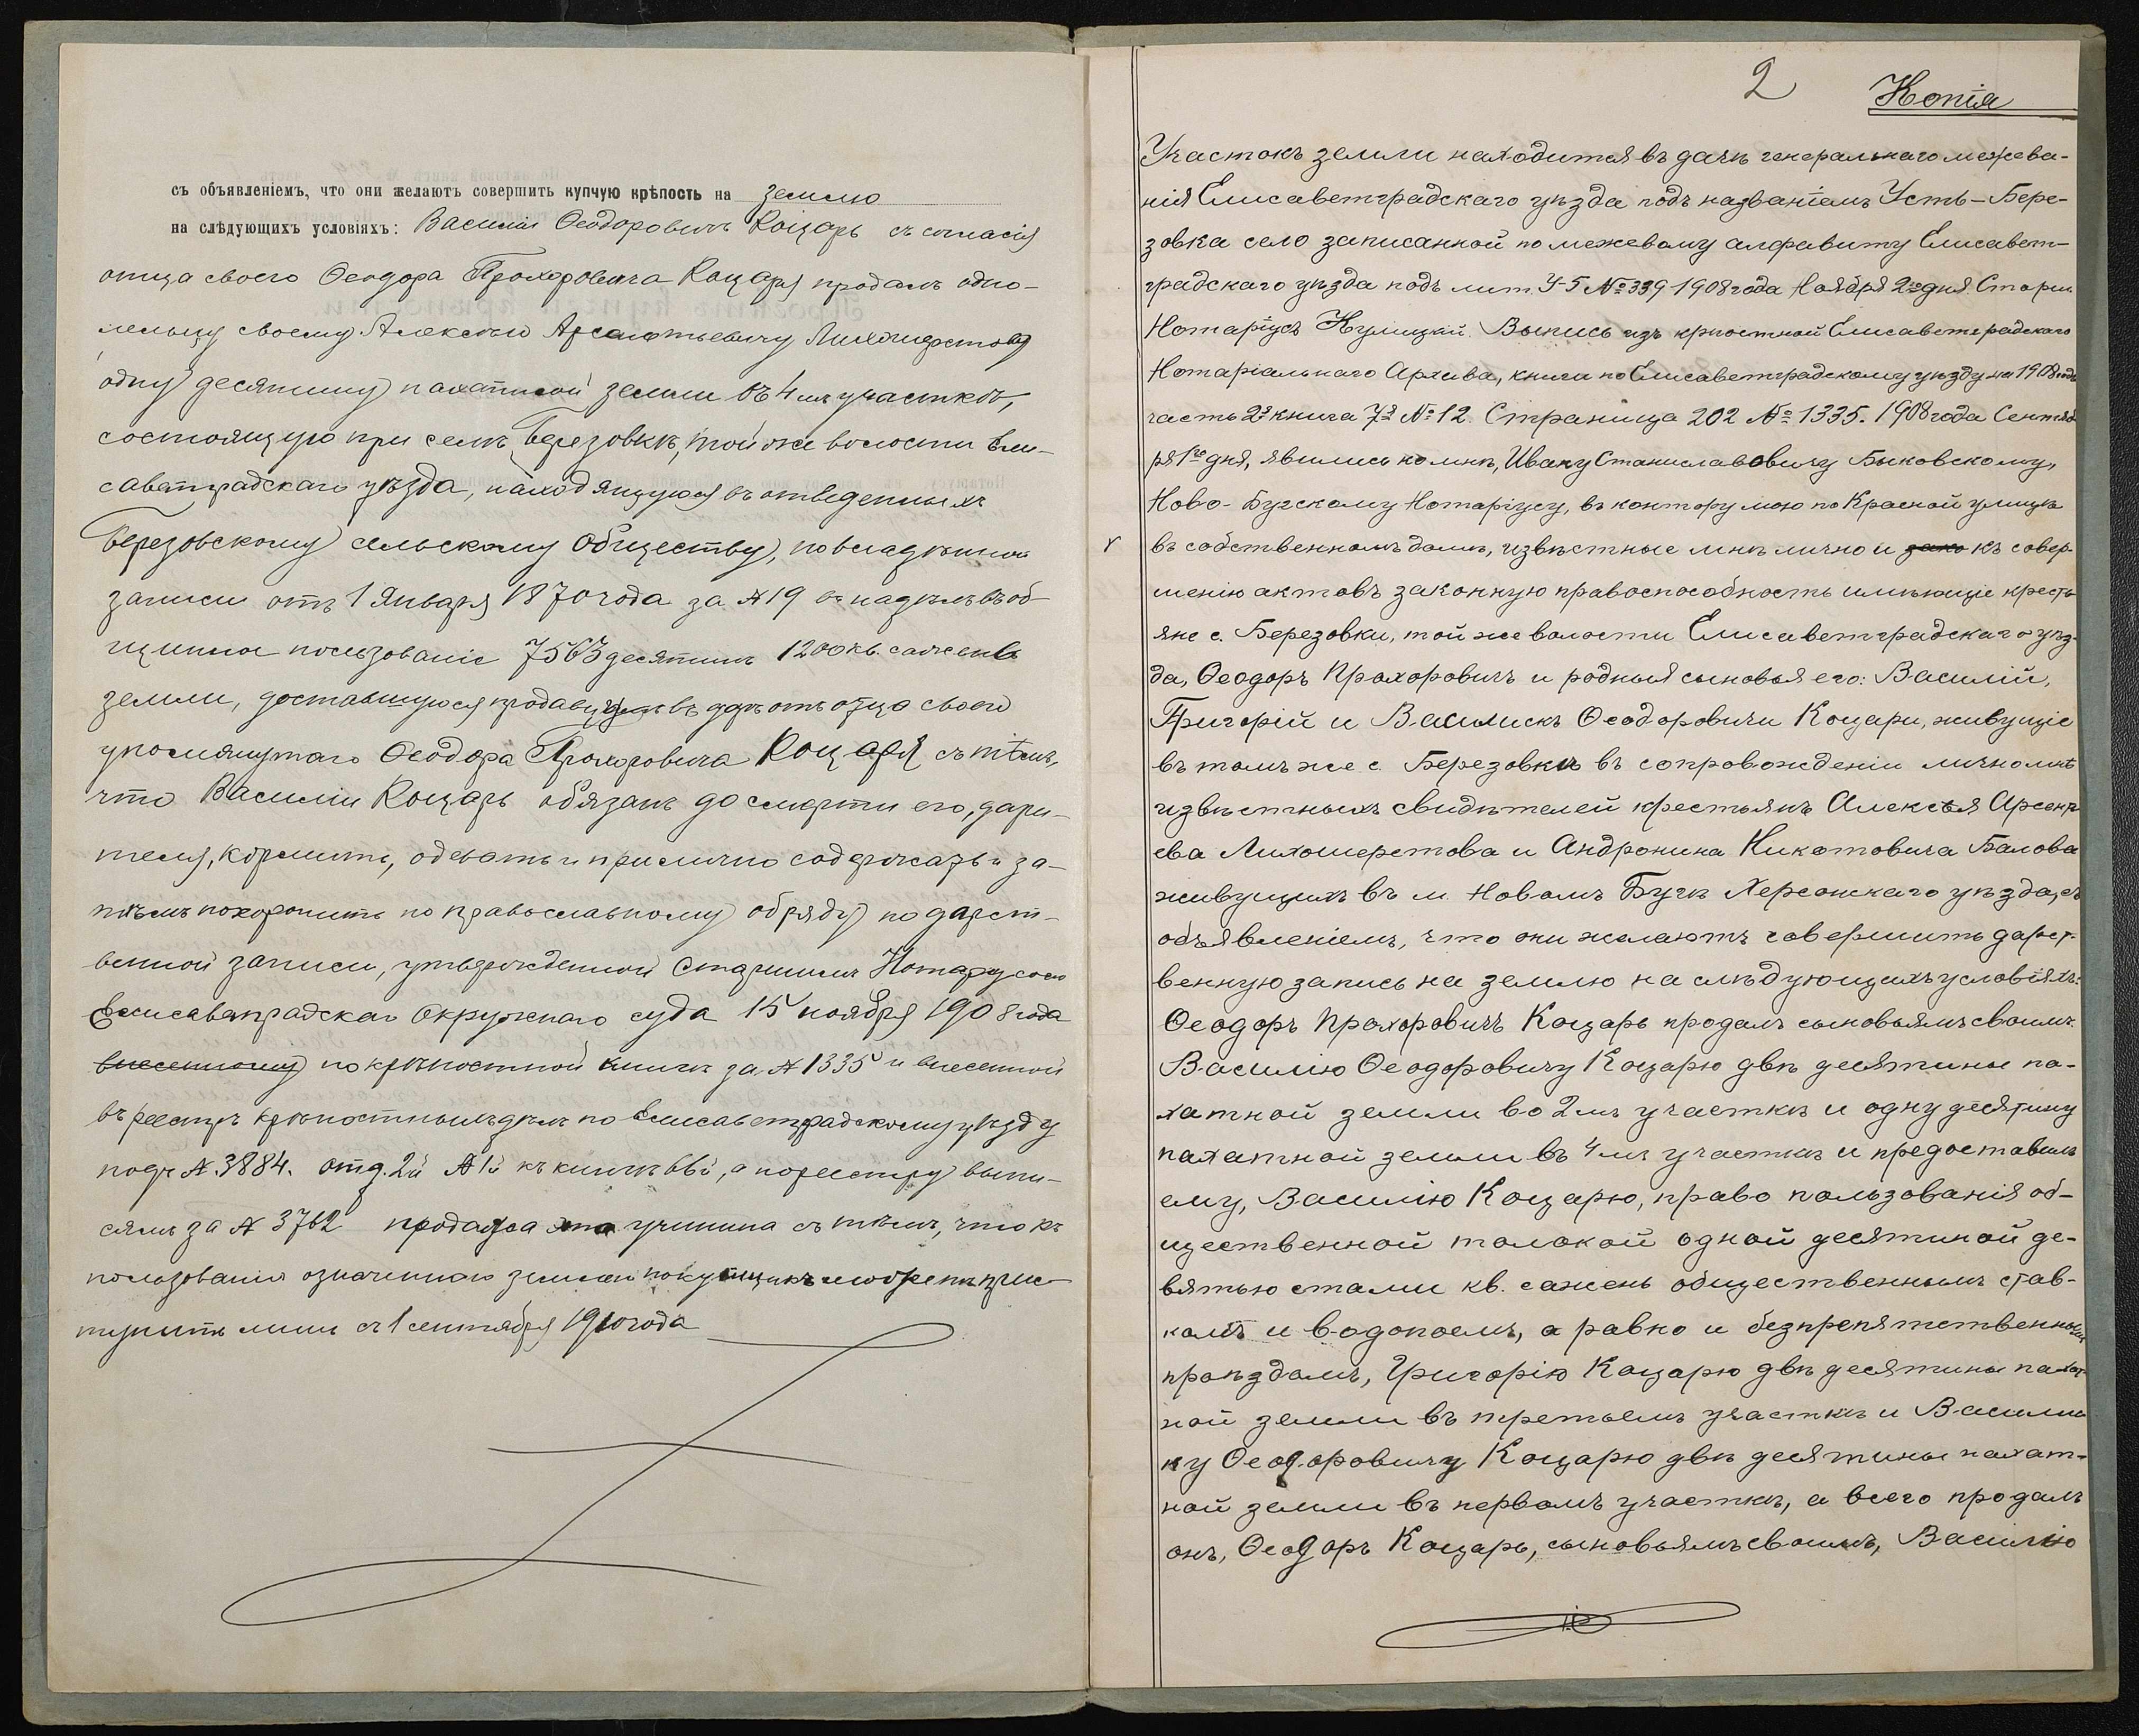 съ объявленіемъ, что они желаютъ совершить купчую крѣпость на землю
на слѣдующихъ условіяхъ: Василій Ѳеодоровичъ Коцарь съ согласія
отца своего Ѳеодора Прохоровича Коцаря продалъ одно-
сельцу своему Алексѣю Арсентьевичу Лихошерстову
одну десятину пахатной земли въ 4мъ участкѣ,
состоящую при селѣ Березовкѣ, той же волости Ели-
саветградскаго уѣзда, находящуюся въ отведенныхъ
Березовскому сельскому Обществу, по владѣнной
записи отъ 1 Января 1870 года за № 19 въ надѣлъ въ об-
щинное пользованіе 7563 десятинъ 1200 кв. сажень
земли, доставшуюся продавцу въ даръ отъ отца своего
упомянутаго Ѳеодора Прохоровича Коцаря съ тѣмъ,
что Василій Коцарь обязанъ до смерти его, дари-
теля, кормить, одевать и прилично содержать и за-
тѣмъ похоронить по православному обряду по дарст-
венной записи, утвержденной Старшимъ Нотаріусомъ
Елисаветградскаго Окружнаго суда 15 ноября 1908 года
внесенному по крѣпостной книгѣ за № 1335 и внесенной
въ реестръ крѣпостныхъ дѣлъ по Елисаветградскому уѣзду
подъ № 3884. отд. 2й № 1й къ книгѣ 66й, а по реестру выпи-
сямъ за № 3762 продажа эта учинена съ тѣмъ, что къ
пользованію означенной землей покупщикъ можетъ прис-
тупить лишь съ 1 сентября 1910 года
2 Копія
Участокъ земли находится въ дачѣ генеральнаго межева-
нія Елисаветградскаго уѣзда подъ названіемъ Усть-Бере-
зовка село записанной по межевому алфавиту Елисавет-
градскаго уѣзда подъ лит. У-5 № 339 1908 года Ноября 2го дня. Старш.
Нотаріусъ Кулицкій. Выпись изъ крѣпостной Елисаветградскаго
Нотаріальнаго Архива, книги по Елисаветградскому уѣзду на 1908 годъ
часть 2я книга 7я № 12. Страница 202 № 1335. 1908 года Сентяб-
ря 1го дня, явились ко мнѣ, Ивану Станиславовичу Быковскому,
Ново-Бугскому Нотаріусу, въ контору мою по Красной улицѣ
въ собственномъ домѣ, извѣстные мнѣ лично и зако къ совер-
шенію актовъ законную правоспособность имѣющіе кресть-
яне с. Березовки, той же волости Елисаветградскаго уѣз-
да, Ѳеодоръ Прохоровичъ и родныя сыновья его: Василій,
Григорій и Василискъ Ѳеодоровичи Коцари, живущіе
въ томъ же с. Березовкѣ въ сопровожденіи лично мнѣ
извѣстныхъ свидѣтелей крестьянъ Алексѣя Арсенть-
ева Лихошерстова и Андронина Никотовича Балова
живущихъ въ м. Новомъ Бугѣ Херсонскаго уѣзда, съ
объявленіемъ, что они желаютъ совершить дарст-
венную запись на землю на слѣдующихъ условіяхъ:
Ѳеодоръ Прохоровичъ Коцарь продалъ сыновьямъ своимъ
Василію Ѳеодоровичу Коцарю двѣ десятины па-
хатной земли во 2мъ участкѣ и одну десятину
пахатной земли въ 4мъ участкѣ и предоставилъ
ему, Василію Коцарю, право пользованія об-
щественной толокой одной десятиной де-
вятью стами кв. сажень общественнымъ став-
комъ и водопоемъ, а равно и безпрепятственнымъ
проѣздомъ, Григорію Коцарю двѣ десятины пахат-
ной земли въ третьемъ участкѣ и Василис-
ку Ѳеодоровичу Коцарю двѣ десятины пахат-
ной земли въ первомъ участкѣ, а всего продалъ
онъ, Ѳеодоръ Коцарь, сыновьямъ своимъ, Василію